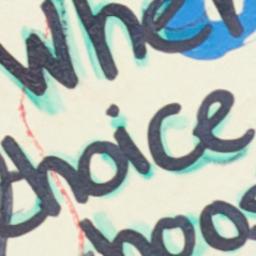 when
choice
hoos